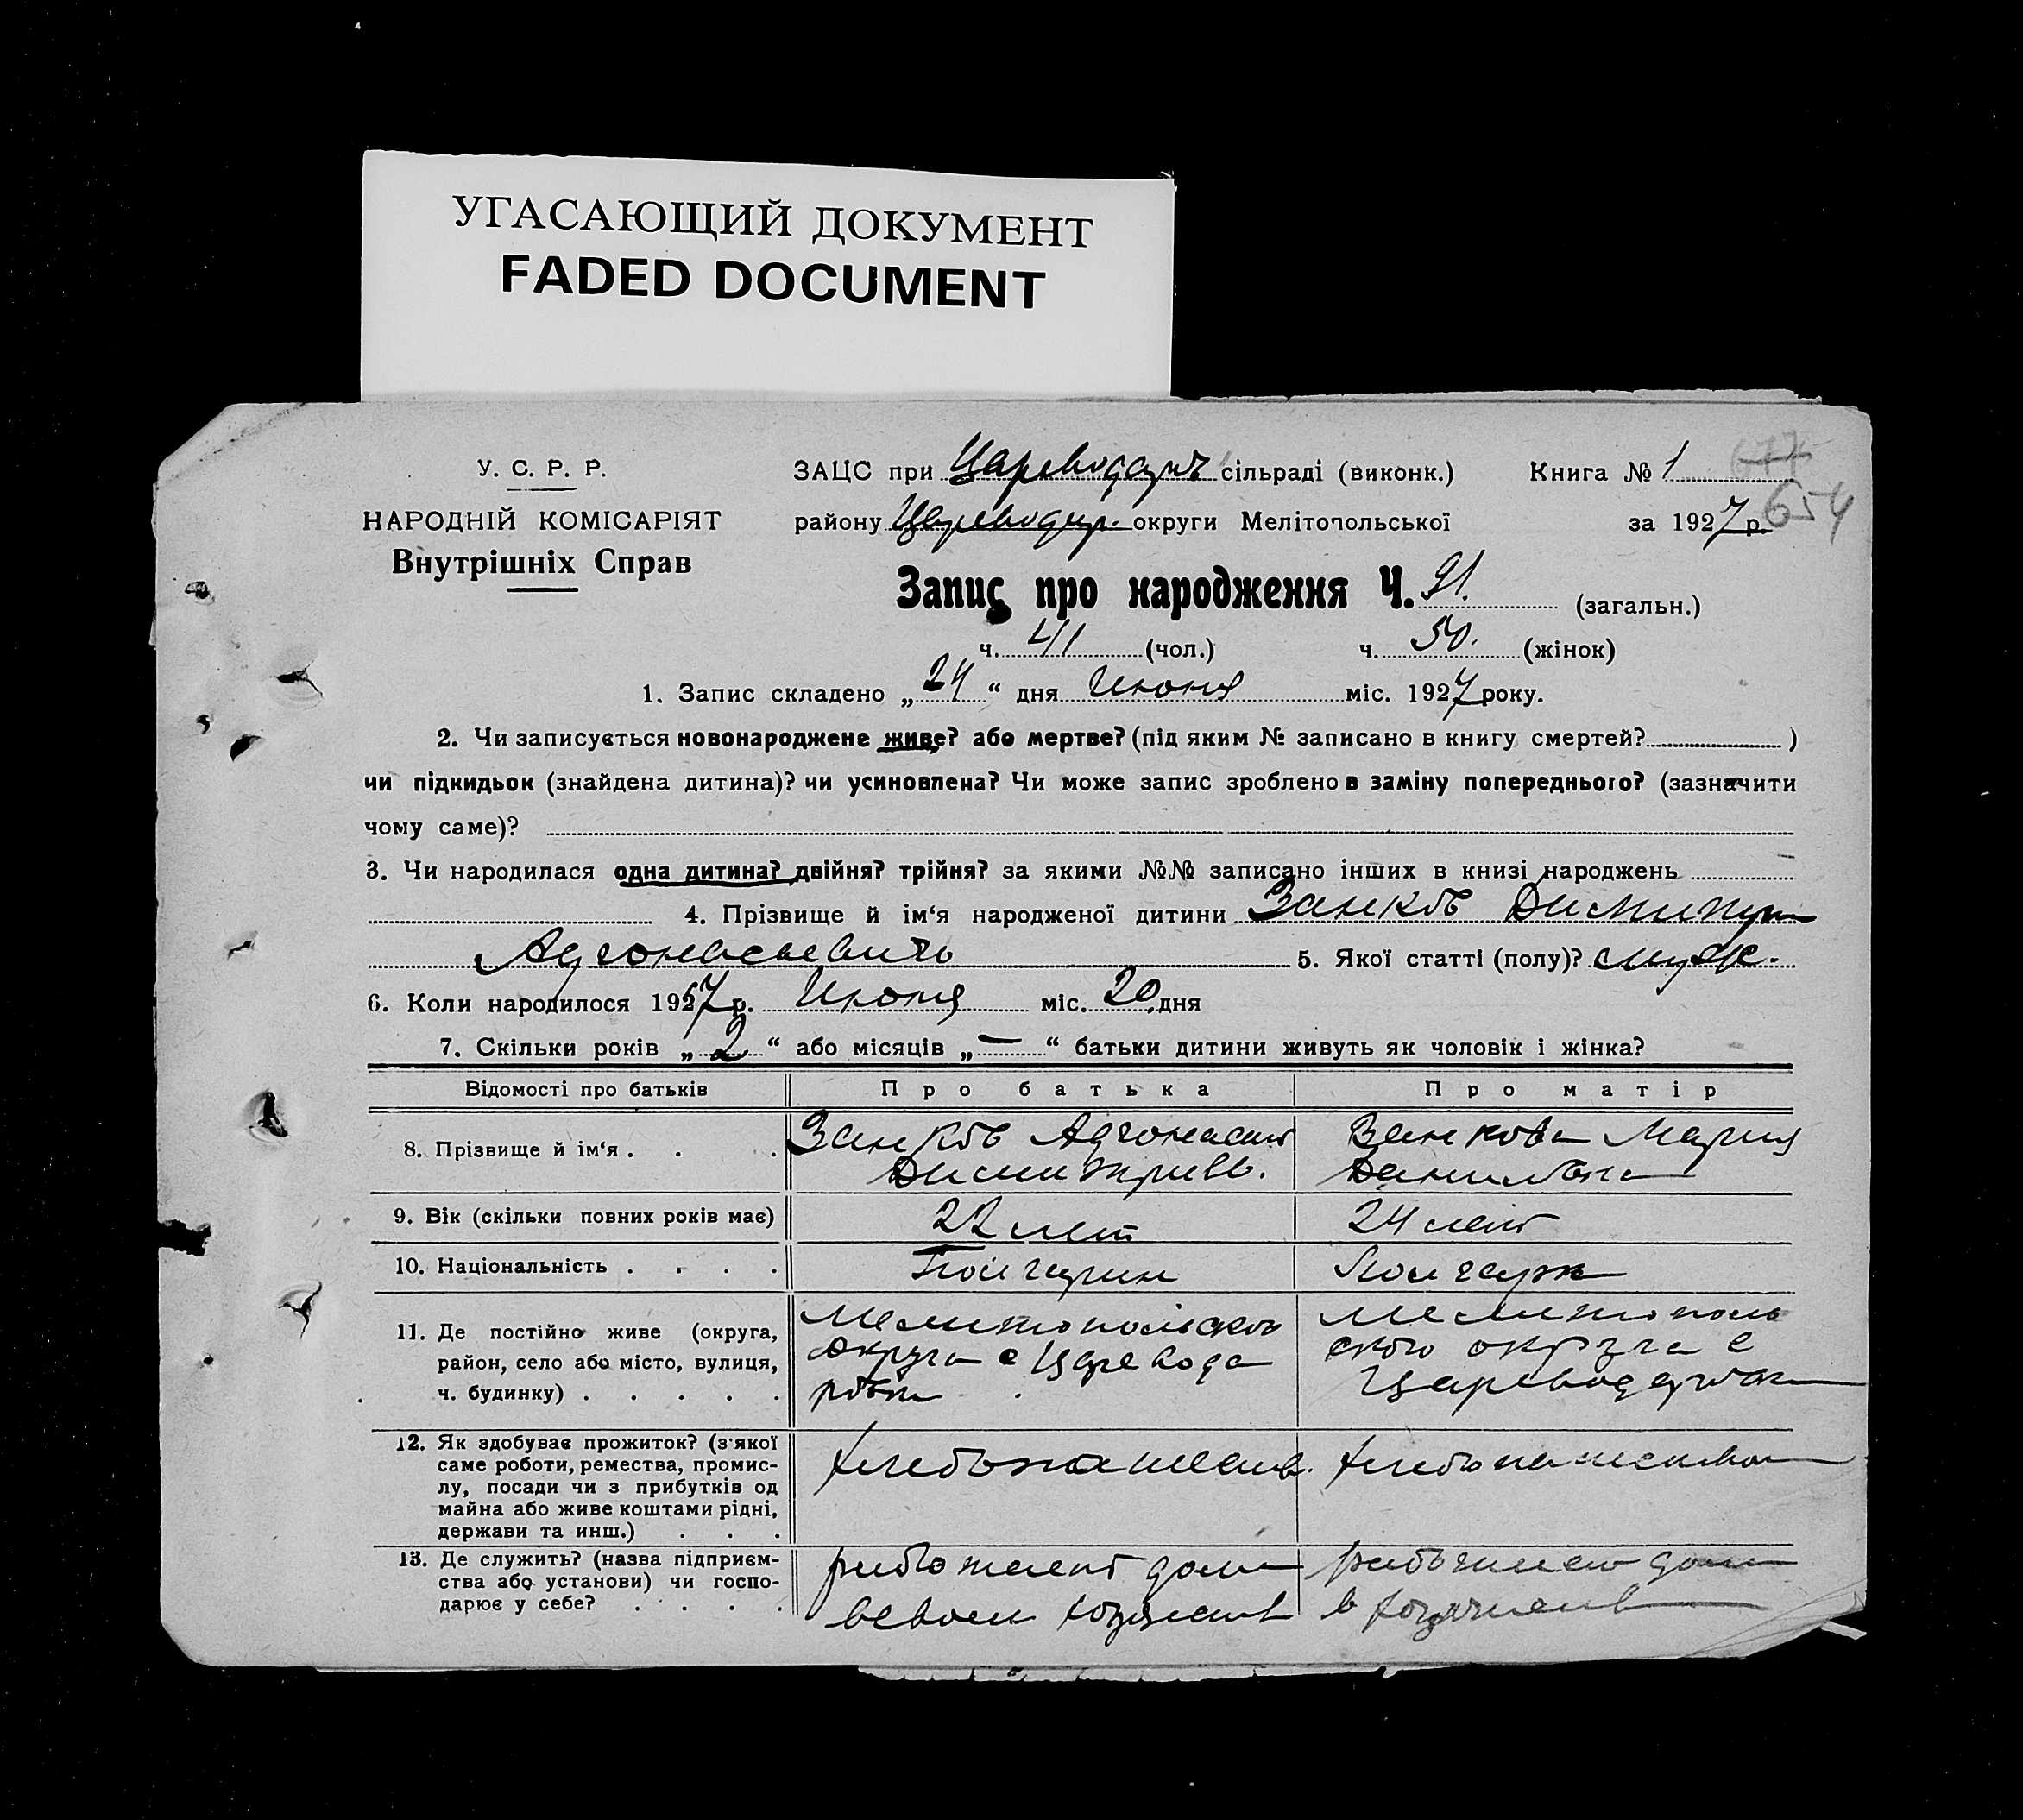 УГАСАЮЩИЙ ДОКУМЕНТ
FADED DOCUMENT
У. С. Р. Р.
НАРОДНІЙ КОМІСАРІЯТ
Внутрішніх Справ
ЗАЦС при сільраді (виконк.) Книга № 1 677
району округи Мелітопольської за 1927 р. 654
Запис про народження Ч. 91. (загальн.)
ч. 41 (чол.) ч. 50. (жінок)
1. Запис складено „24“ дня Июня міс. 1927 року.
2. Чи записується новонароджене живе? або мертве? (під яким № записано в книгу смертей? )
чи підкидьок (знайдена дитина)? чи усиновлена? Чи може запис зроблено в заміну попереднього? (зазначити
чому саме)?
3. Чи народилася одна дитина? двійня? трійня? за якими №№ записано інших в книзі народжень
4. Прізвище й ім‘я народженої дитини Занковъ Димитри
5. Якої статті (полу)? муж.
6. Коли народилося 1927 р. Июня міс. 20 дня
7. Скільки років „2“ або місяців „—“ батьки дитини живуть як чоловік і жінка?
Відомості про батьків Про батька Про матір
8. Прізвище й ім‘я . . . Занковъ Занкова Мария
Данилов
9. Вік (скільки повних років має) 22 лет 24 лет
10. Національність . . . .
11. Де постійно живе (округа,
район, село або місто, вулиця,
ч. будинку) . . . . .
Мелитопольской
округа с Царевода
ровка
Мелитополь
ского округа с
12. Як здобуває прожиток? (з якої
саме роботи, ремества, промис-
лу, посади чи з прибутків од
майна або живе коштами рідні,
держави та инш.) . . .
13. Де служить? (назва підприєм-
ства або установи) чи госпо-
дарює у себе? . . . .
работает дома
в своем
работает дома
в